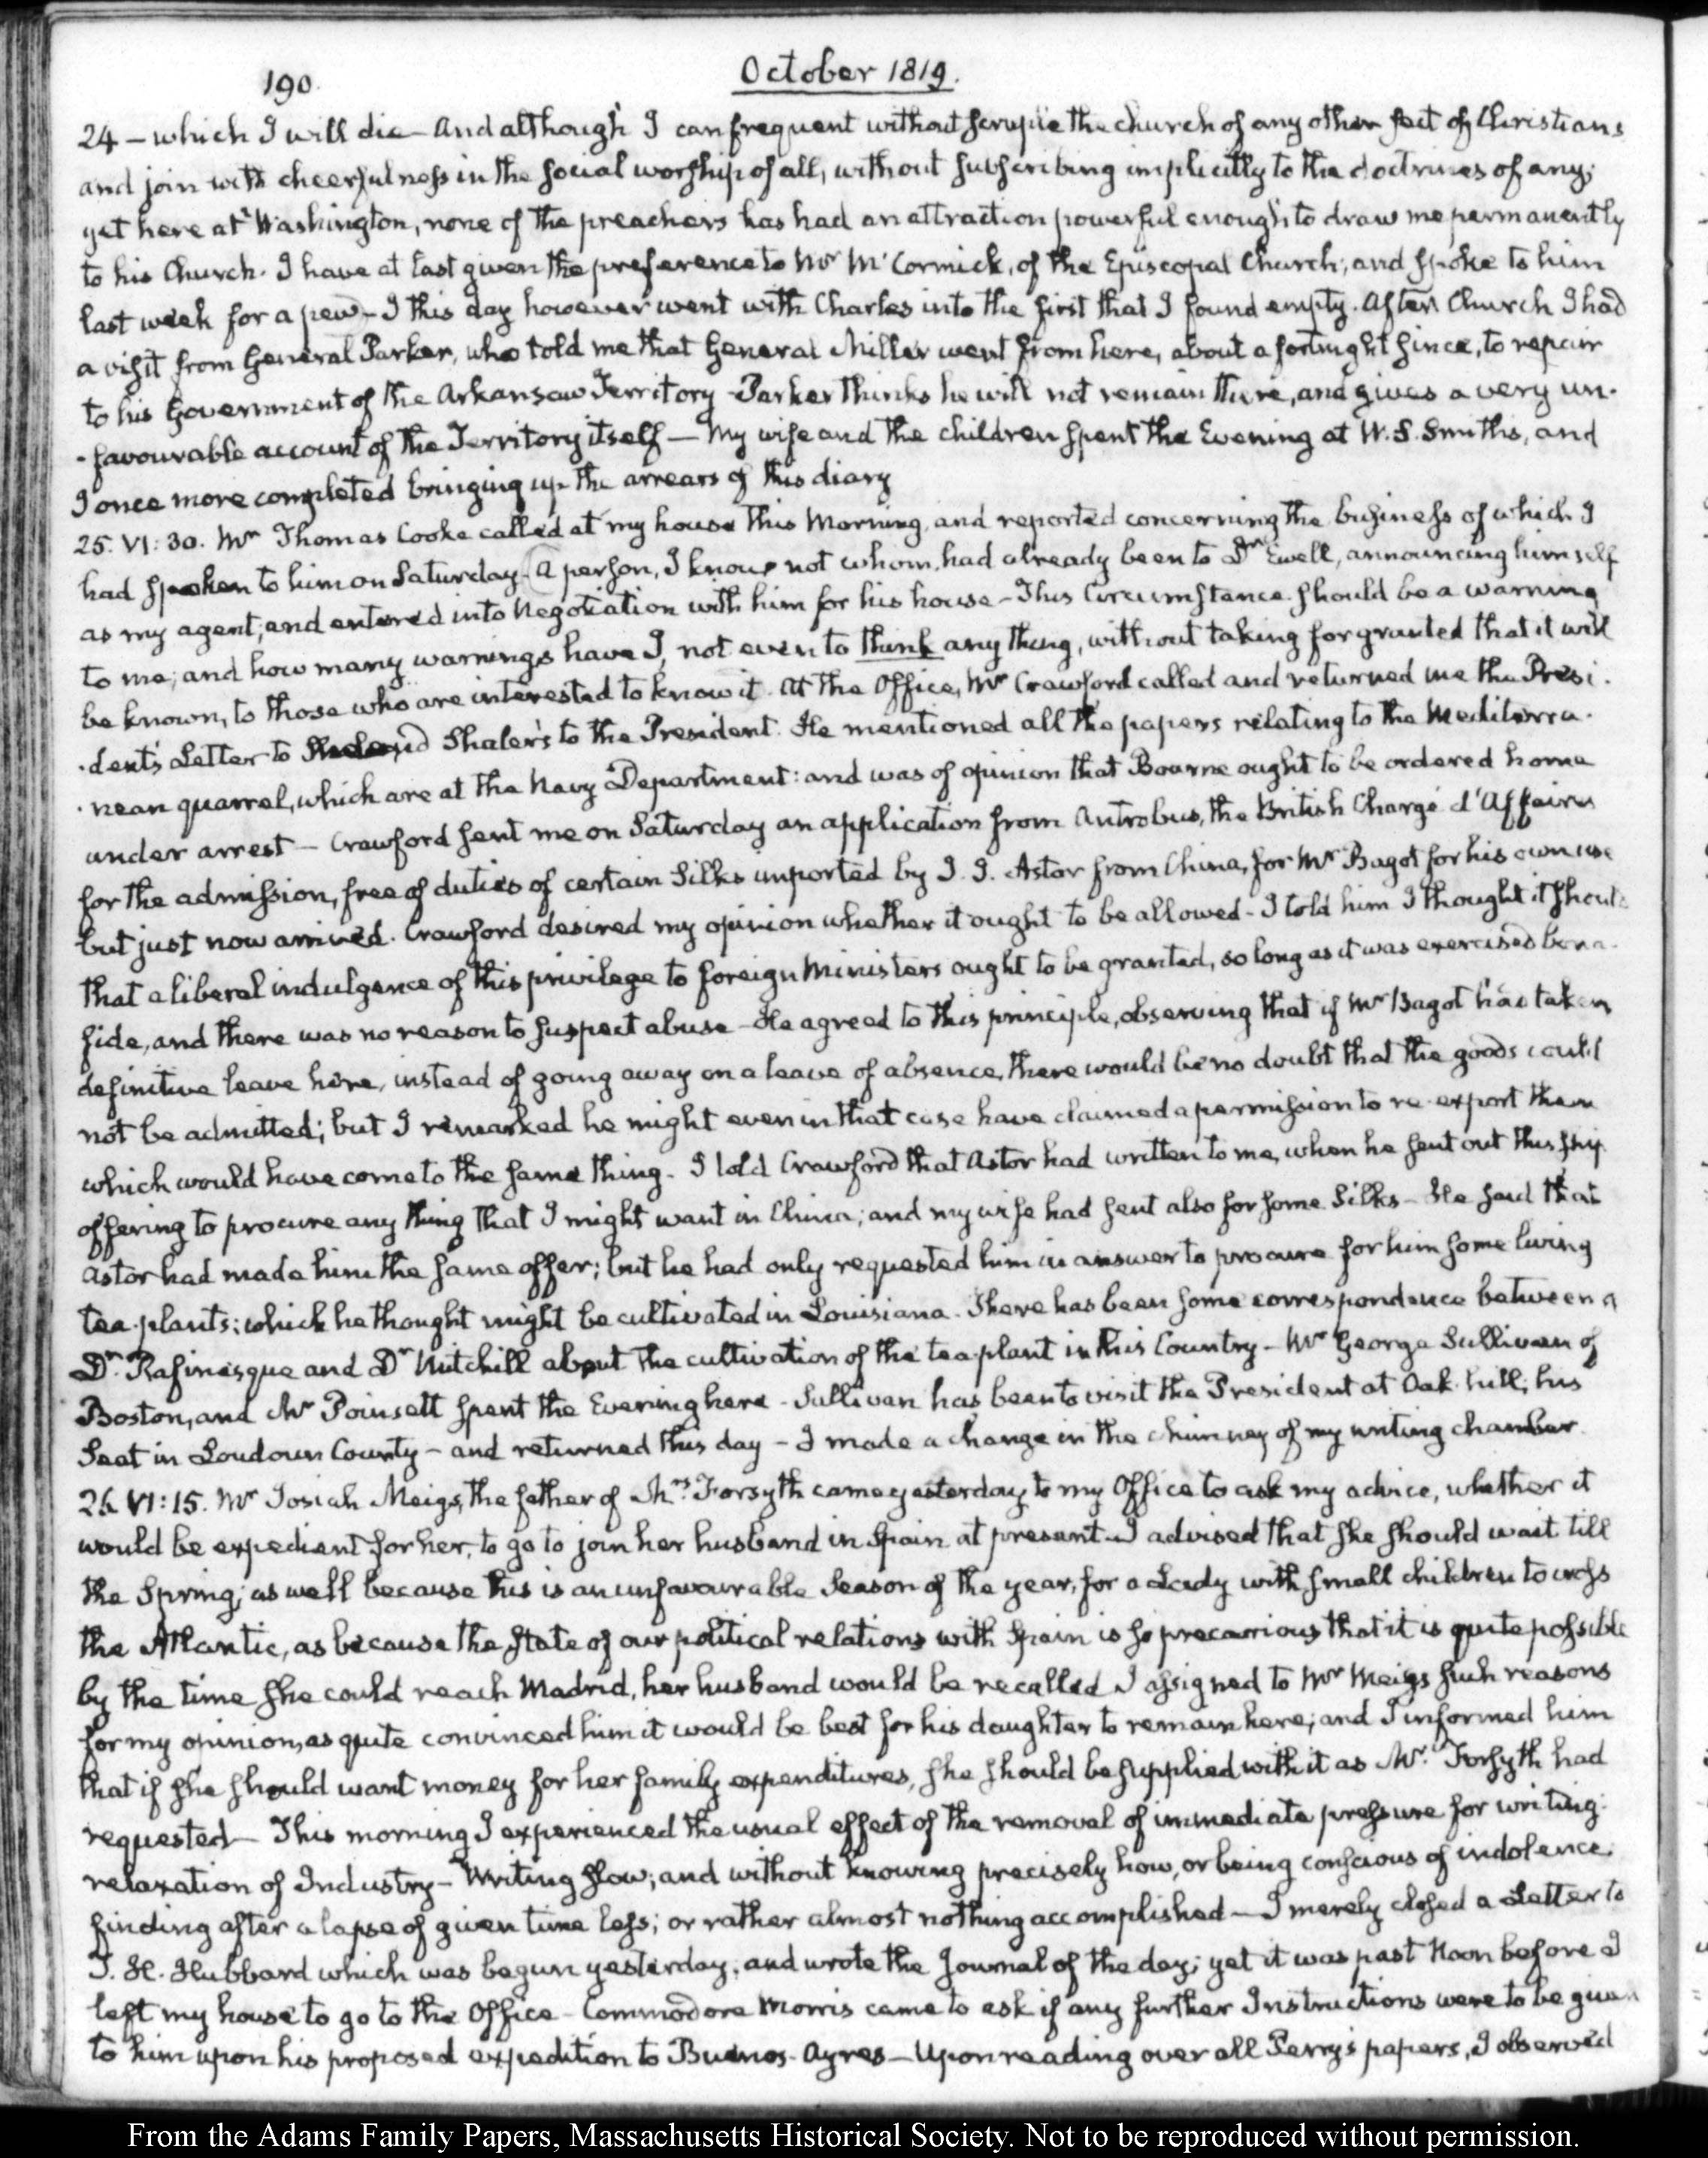 190.
October 1819.
24 — which I will die — And although I can frequent without scruple the Church of any other sect of Christians
and join with cheerfulness in the social worship of all, without subscribing implicitly to the doctrines of any;
yet here at Washington, none of the preachers has had an attraction powerful enough to draw me permanently
to his Church. I have at last given the preference to Mr M'Cormick, of the Episcopal Church, and spoke to him
last week for a pew — I this day however went with Charles into the first that I found empty. After Church I had
a visit from General Parker, who told me that General Miller went from here, about a fortnight since, to repair
to his Government of the Arkansaw Territory — Parker thinks he will not remain there, and gives a very un-
-favourable account of the Territory itself — My wife and the children spent the Evening at W. S. Smith's, and
I once more completed bringing up the arrears of this diary
25. VI: 30. Mr Thomas Cooke called at my house this Morning, and reported concerning the business of which I
had spoken to him on Saturday. A person, I know not whom, had already been to Dr Ewell, announcing himself
as my agent, and entered into Negotiation with him for his house — This Circumstance should be a warning
to me; and how many warnings have I, not even to think any thing, without taking for granted that it will
be known, to those who are interested to know it. At the Office, Mr Crawford called and returned me the Presi-
-dent's Letter to and Shaler's to the President. He mentioned all the papers relating to the Mediterra-
-nean quarrel, which are at the Navy Department: and was of opinion that Bourne ought to be ordered home
under arrest — Crawford sent me on Saturday an application from Antrobus, the British Chargé d'Affaires
for the admission, free of duties of certain Silks imported by J. J. Astor from China, for Mr Bagot for his own use
but just now arrived. Crawford desired my opinion whether it ought to be allowed — I told him I thought it should
that a liberal indulgence of this privilege to foreign Ministers ought to be granted, so long as it was exercised bona-
fide, and there was no reason to suspect abuse — He agreed to this principle, observing that if Mr Bagot had taken
definitive leave here, instead of going away on a leave of absence, there would be no doubt that the goods could
not be admitted; but I remarked he might even in that case have claimed a permission to re-export them
which would have come to the same thing. I told Crawford that Astor had written to me, when he sent out this ship
offering to procure any thing that I might want in China; and my wife had sent also for some Silks — He said that
Astor had made him the same offer; but he had only requested him in answer to procure for him some living
tea-plants; which he thought might be cultivated in Louisiana. There has been some correspondence between a
Dr. Rafinesque and Dr Mitchill about the cultivation of the tea-plant in this Country — Mr George Sullivan of
Boston, and Mr Poinsett spent the Evening here — Sullivan has been to visit the President at Oak-hill, his
Seat in Loudoun County — and returned this day — I made a change in the chimney of my writing chamber.
26. VI: 15. Mr Josiah Meigs, the father of Mrs Forsyth came yesterday to my Office to ask my advice, whether it
would be expedient for her, to go to join her husband in Spain at present — I advised that she should wait till
the Spring; as well because this is an unfavourable Season of the year, for a Lady with small children to cross
the Atlantic, as because the state of our political relations with Spain is so precarious that it is quite possible
by the time she could reach Madrid, her husband would be recalled. I assigned to Mr Meigs such reasons
for my opinion, as quite convinced him it would be best for his daughter to remain here; and I informed him
that if she should want money for her family expenditures, she should be supplied with it as Mr. Forsyth had
requested — This morning I experienced the usual effect of the removal of immediate pressure for writing:
relaxation of Industry — Writing slow; and without knowing precisely how, or being conscious of indolence,
finding after a lapse of given time less; or rather almost nothing accomplished — I merely closed a Letter to
J. H. Hubbard which was begun yesterday, and wrote the Journal of the day; yet it was past Noon before I
left my house to go to the Office — Commodore Morris came to ask if any further Instructions were to be given
to him upon his proposed expedition to Buenos-Ayres — Upon reading over all Perry's papers, I observed
From the Adams Family Papers, Massachusetts Historical Society. Not to be reproduced without permission.